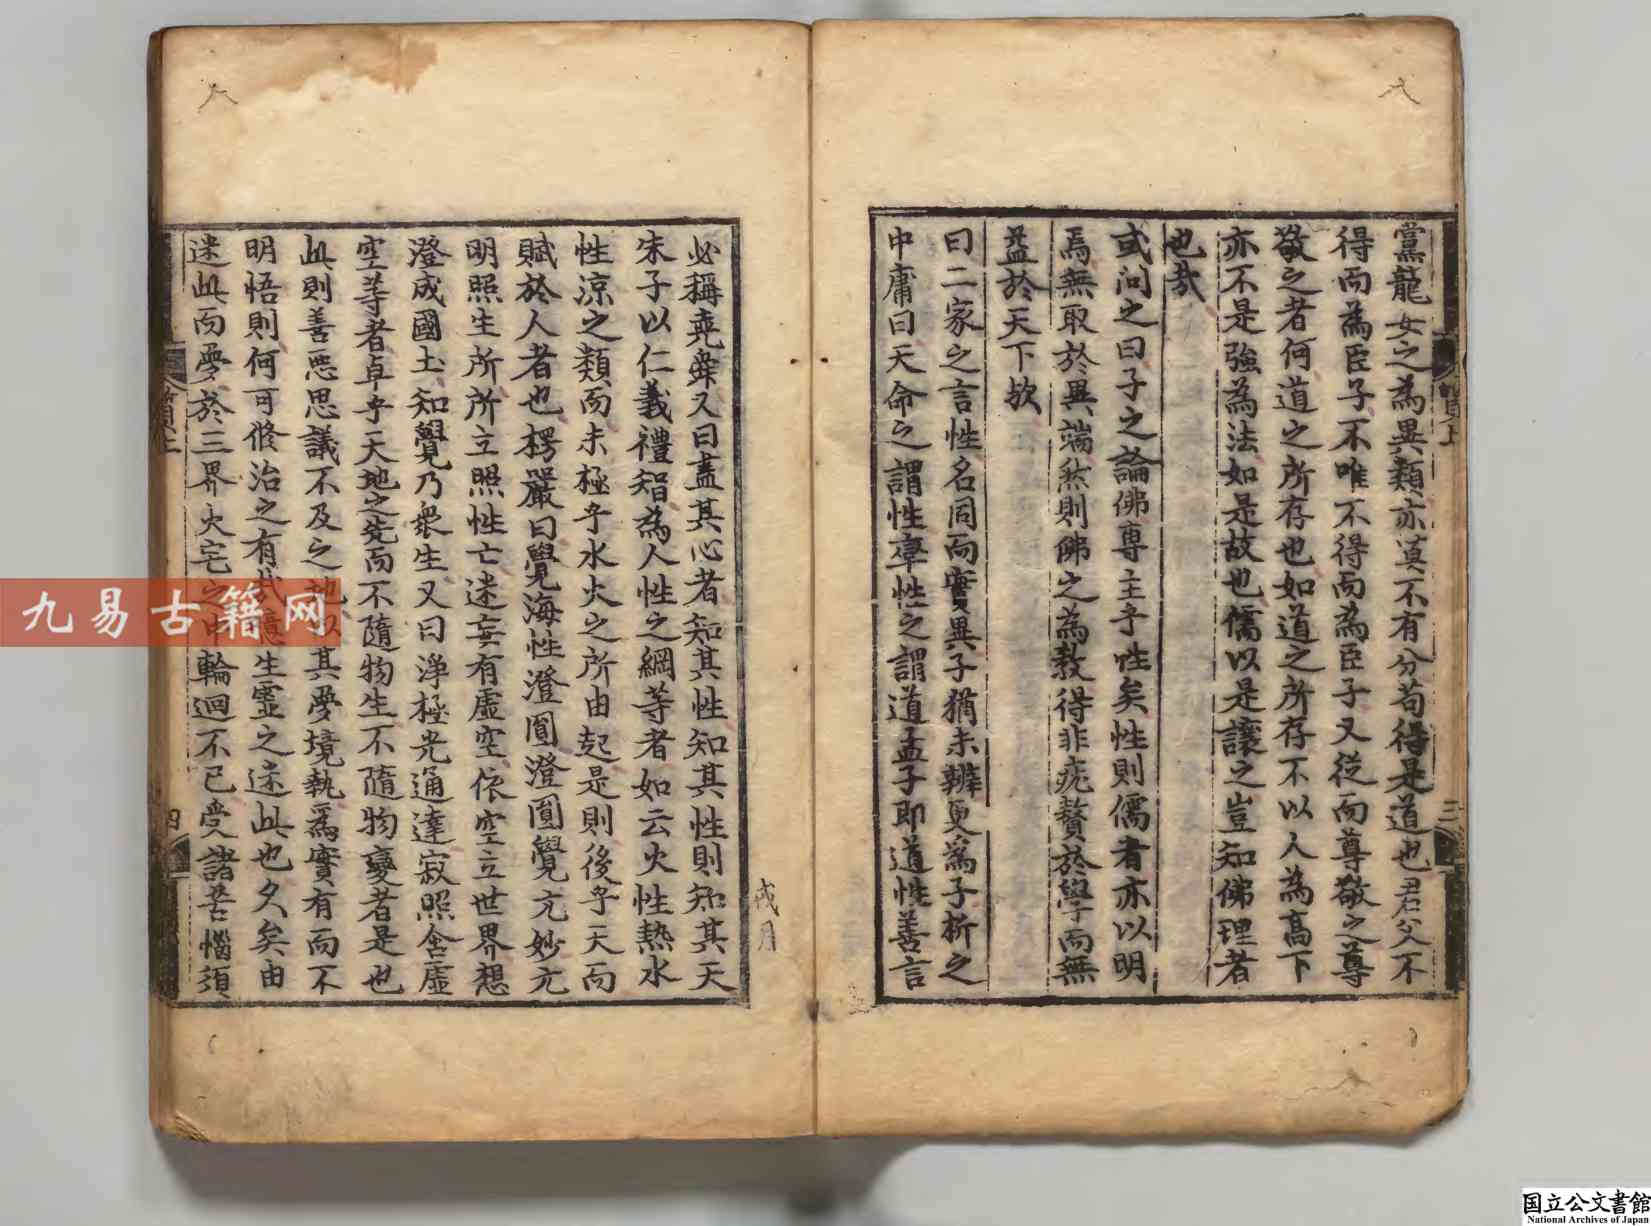 黨龍女之為異類亦莫不有分苟得是道也君父不
得而為臣子不唯不得而為臣子又從而尊敬之尊
敬之者何道之所存也如道之所存不以人為高下
亦不是強為法如是故也儒以是讓之豈知佛理者
也哉
或問之曰子之論佛專主乎性矣性則儒者亦以明
焉無取於異端然則佛之為教得非疣贅於學而無
益於天下欤
曰二家之言性名同而實異子猶未辨更為子析之
中庸曰天命之謂性率性之謂道孟子即道性善言
必稱堯舜又曰盡其心者知其性知其性則知其天
朱子以仁義禮智為人性之綱等者如云火性熱水
性凉之類而未極乎水火之所由起是則後乎天而
賦於人者也楞嚴曰覺海性澄圓澄圓覺元妙元
明照生所所立照性亡迷妄有虛空依空立世界想
澄成國土知覺乃衆生又曰淨極光通達寂照含虛
空等者卓乎天地之先而不隨物生不隨物變者是也
此則善惡思議不及之地以其夢境執爲實有而不
明悟則何可修治之有哉噫生靈之迷此也久矣由
迷此而夢於三界火宅之中輪迴不已受諸苦惱須
質上
三
四
戒月
九易古籍网
国立公文書館
National Archives of Japan